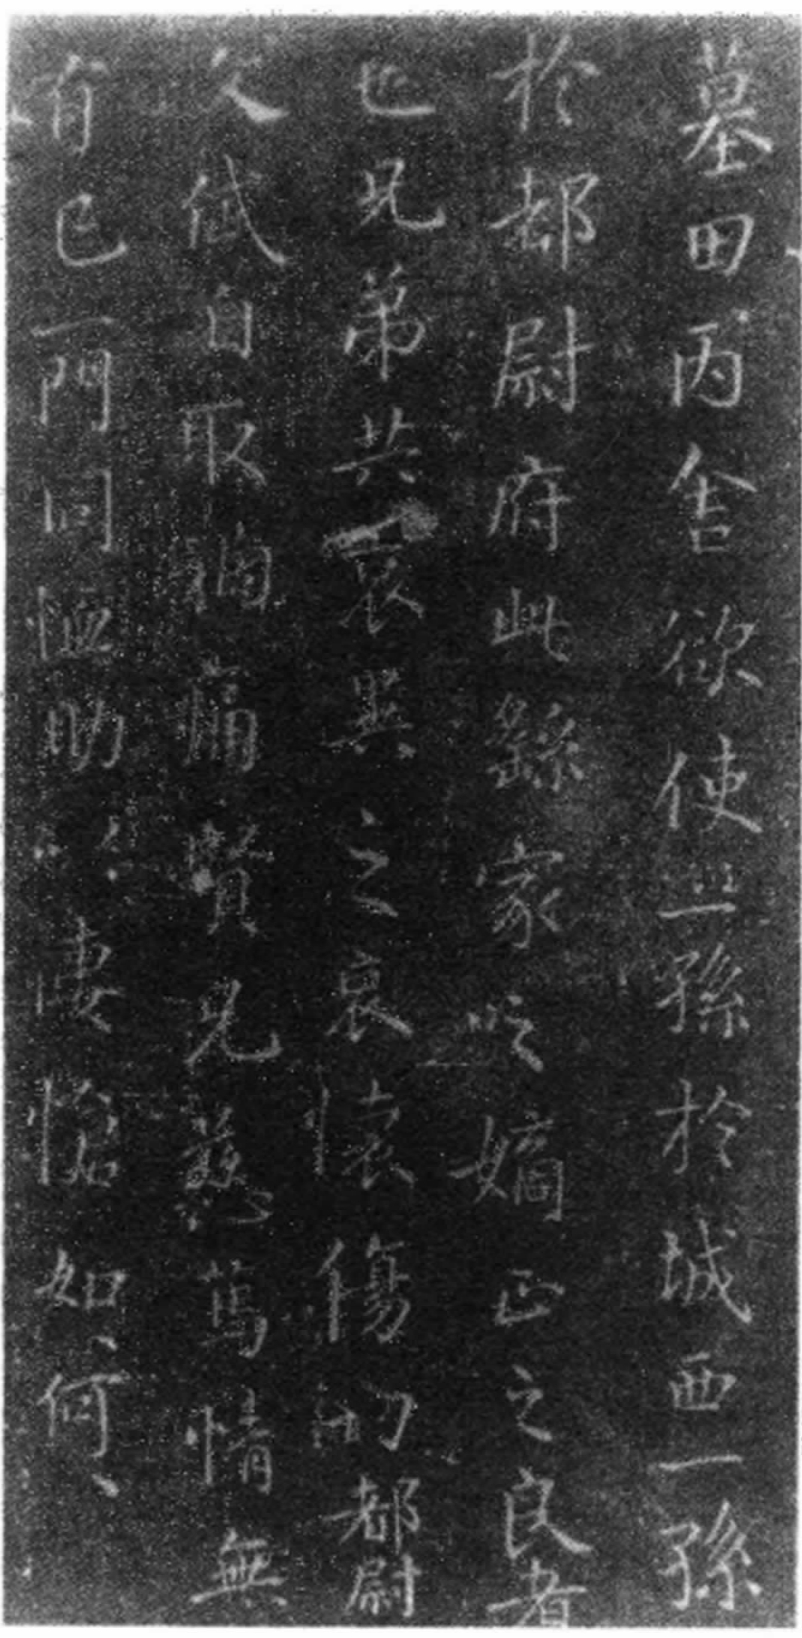 墓田丙舍欲使一孫於城西一孫
於都尉府此繇家之嫡正之良者
也兄弟共哀異之哀懷傷切都尉
文岱自取禍痛賢兄慈篤情無
有已一門同恤助以悽愴如〻何〻